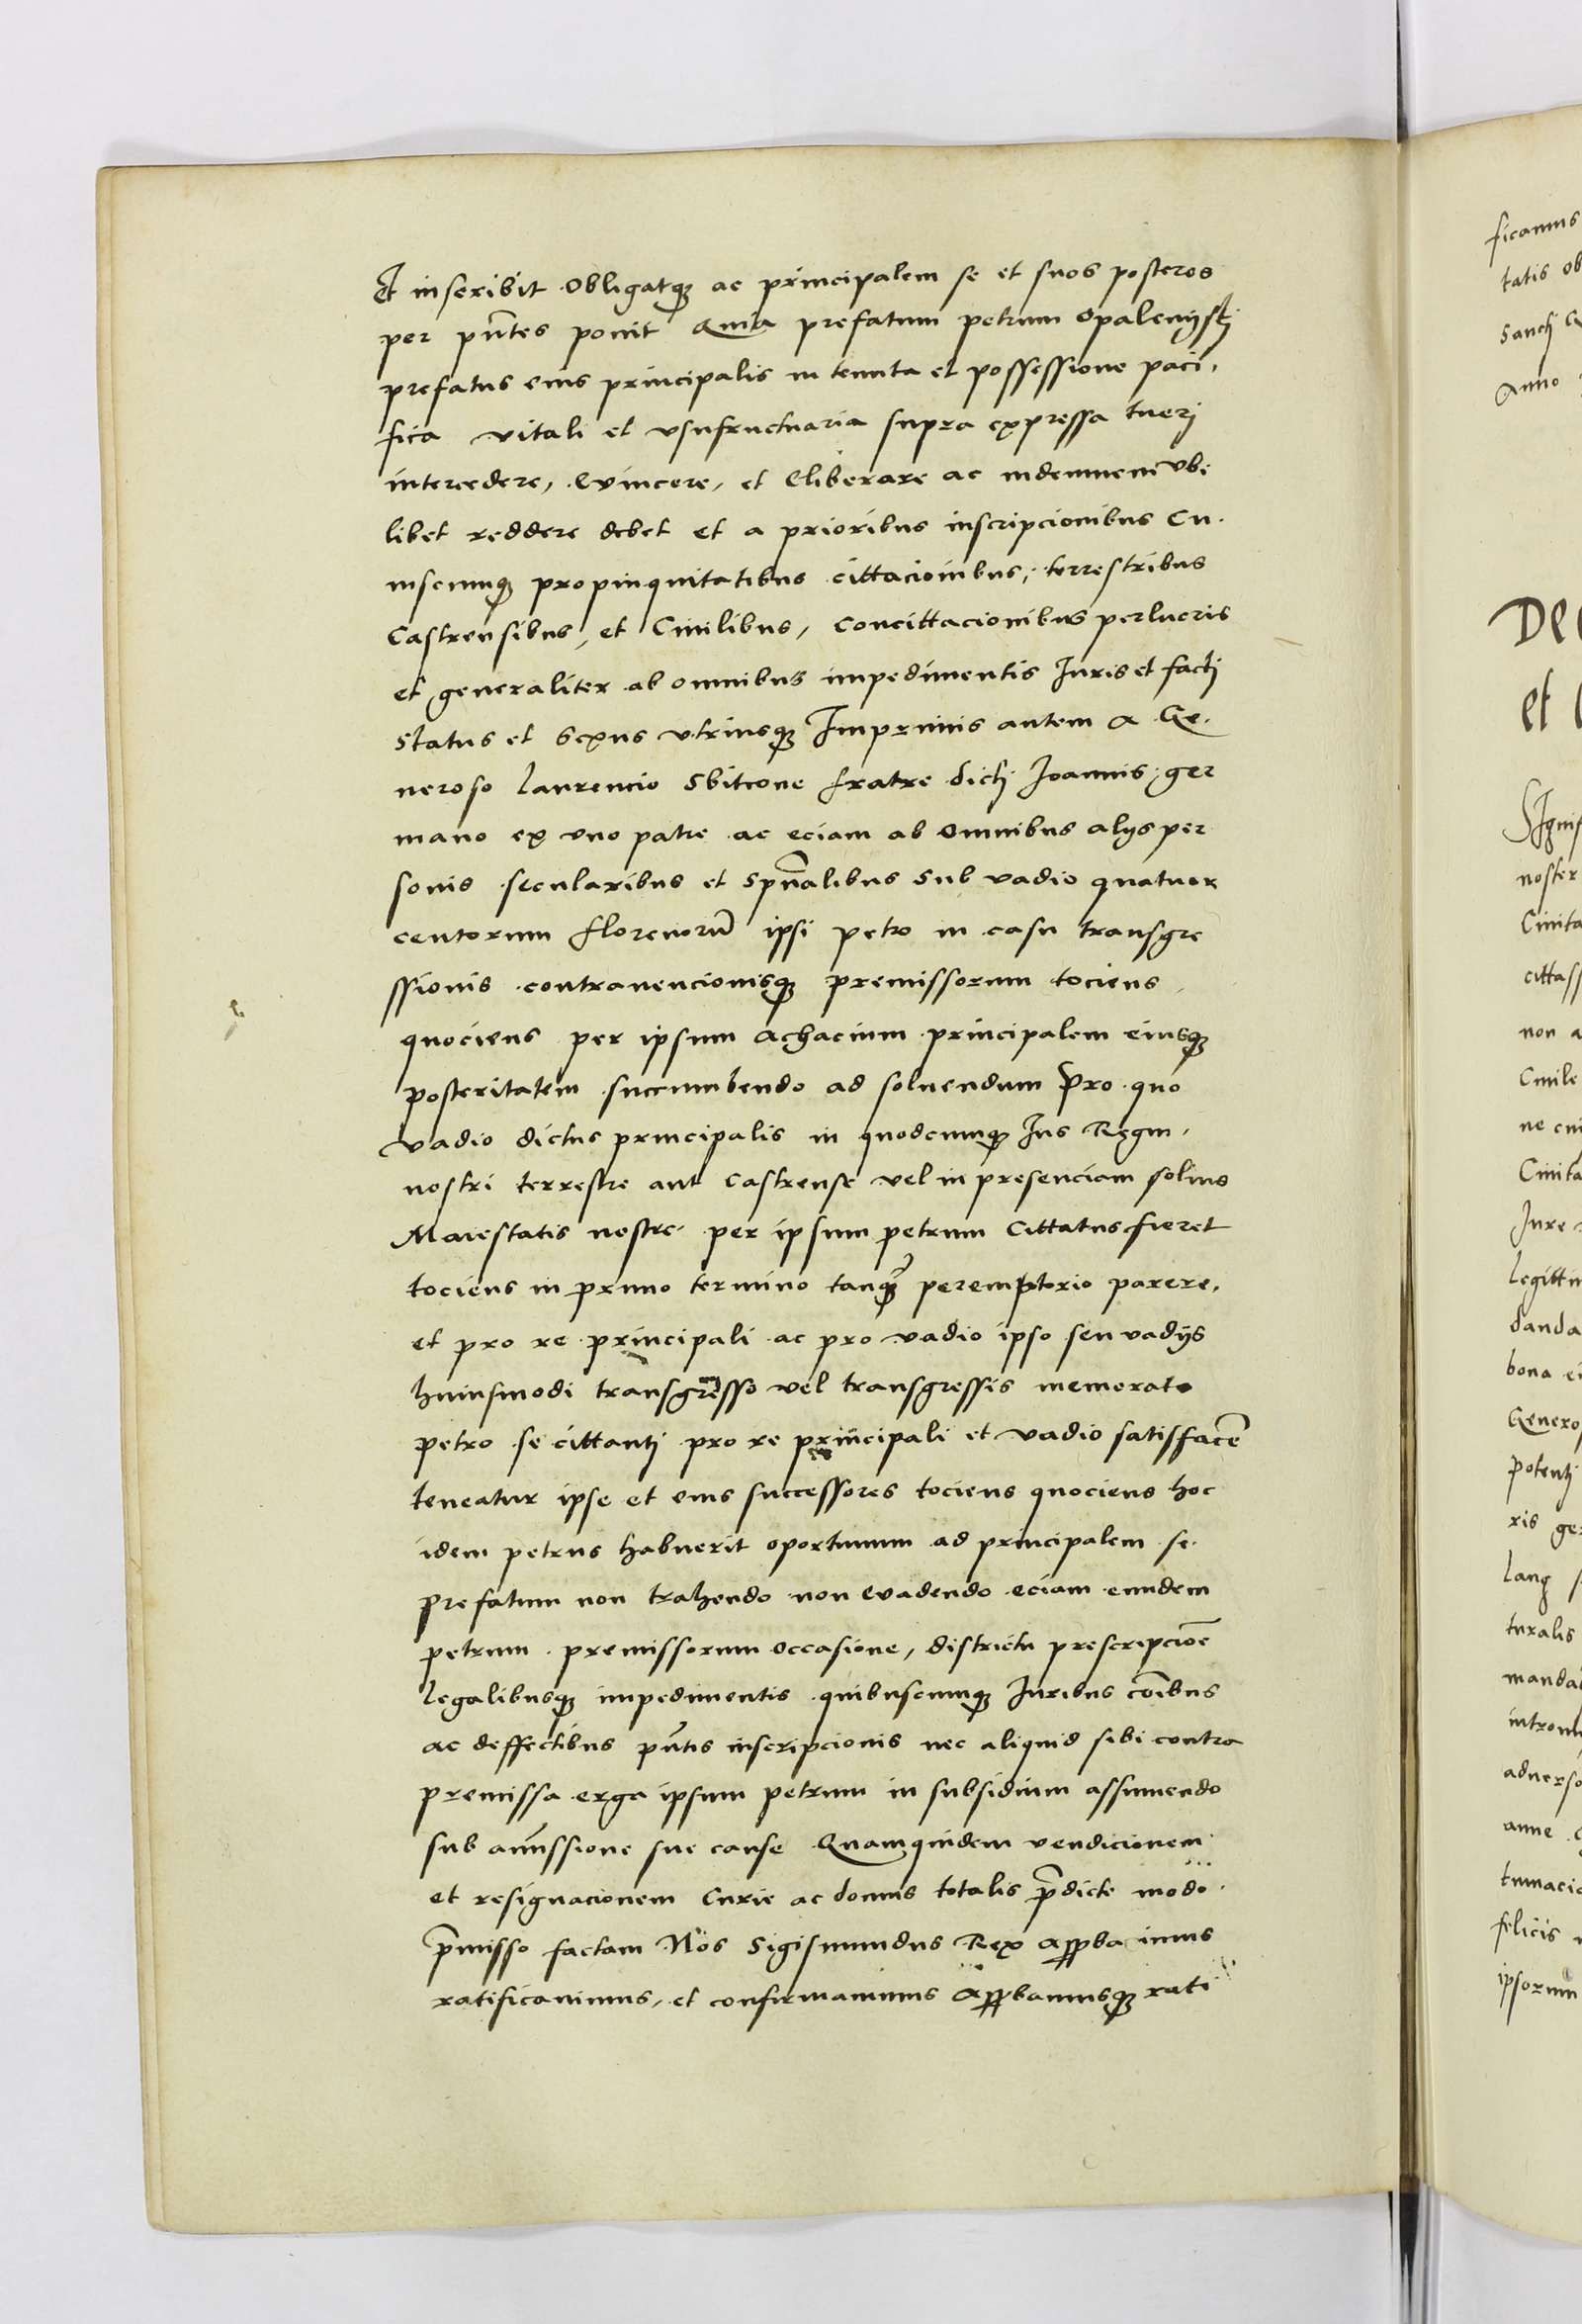 Et inscribit obligatq͛ ac principalem se et suos posteros
per pn̄tes ponit Quia prefatum petrum Opalenijskj
prefatus eius principalis in tenuta et possessione paci-
fica vitali et vsufructuaria supra expressa tuerj
intercedere, Evincere, et Eliberare ac indemnem vbi
libet reddere debet et a prioribus inscripcionibus Cu-
iuscumq͛ propinquitatibus cittacionibus, terrestribus
Castrensibus, et Ciuilibus, Concittacionibus perlucris
et generaliter ab omnibus impedimentis Juris et factj
Status et Sexus vtriusq͛ Imprimis autem a Ge-
neroso laurencio Sbitcone fratre dictj Joannis, ger
mano ex vno patre ac eciam ab omnibus alijs per
sonis secularibus et spūalibus Sub vadio quatuor
centorum florenorū ipsi petro in casu transgre
ssionis contrauencionisq͛ premissorum tociens
quociens per ipsum achacium principalem eiusq͛
posteritatem succumbendo ad soluendum Pro quo
vadio dictus principalis in quodcumq͛ Jus Regni
nostri terrestre aut Castrense vel in presenciam solius
Maiestatis nostre per ipsum petrum Cittatus fieret
tociens in primo termino tanq͛ peremptorio parere,
et pro re principali ac pro vadio ipso seu vadijs
huiusmodi transgresso vel transgressis memorato
petro se cittantj pro re principali et vadio satisfacē
teneatur ipse et eius successores tociens quociens hoc
idem petrus habuerit oportunum ad principalem se
prefatum non trahendo non Evadendo eciam eundem
petrum premissorum occasione, districtu prescripcioē
legalibusq͛ impedimentis quibuscumq͛ Juribus cōibus
ac deffectibus pn̄tis inscripcionis nec aliquid sibi contra
premissa erga ipsum petrum in subsidium assumendo
sub amissione sue cause Quamquidem vendicionem
et resignacionem Curie ac domus totalis p̄dicte modo
p̄misso factam Nos Sigismundus Rex approbauimus
ratificauimus, et confirmauimus approbamusq͛ rati
ficamus
tatis ob
Sanctj
Anno
De
et
Signif
noster
Ciuita
cittass
non a
Ciuile
ne
Ciuita
Jure
legittim
danda
bona ei
Genero
potentj
ris ge
lang
turalis
manda
introm
aduerso
anne
tumacia
felicis
ipsorum